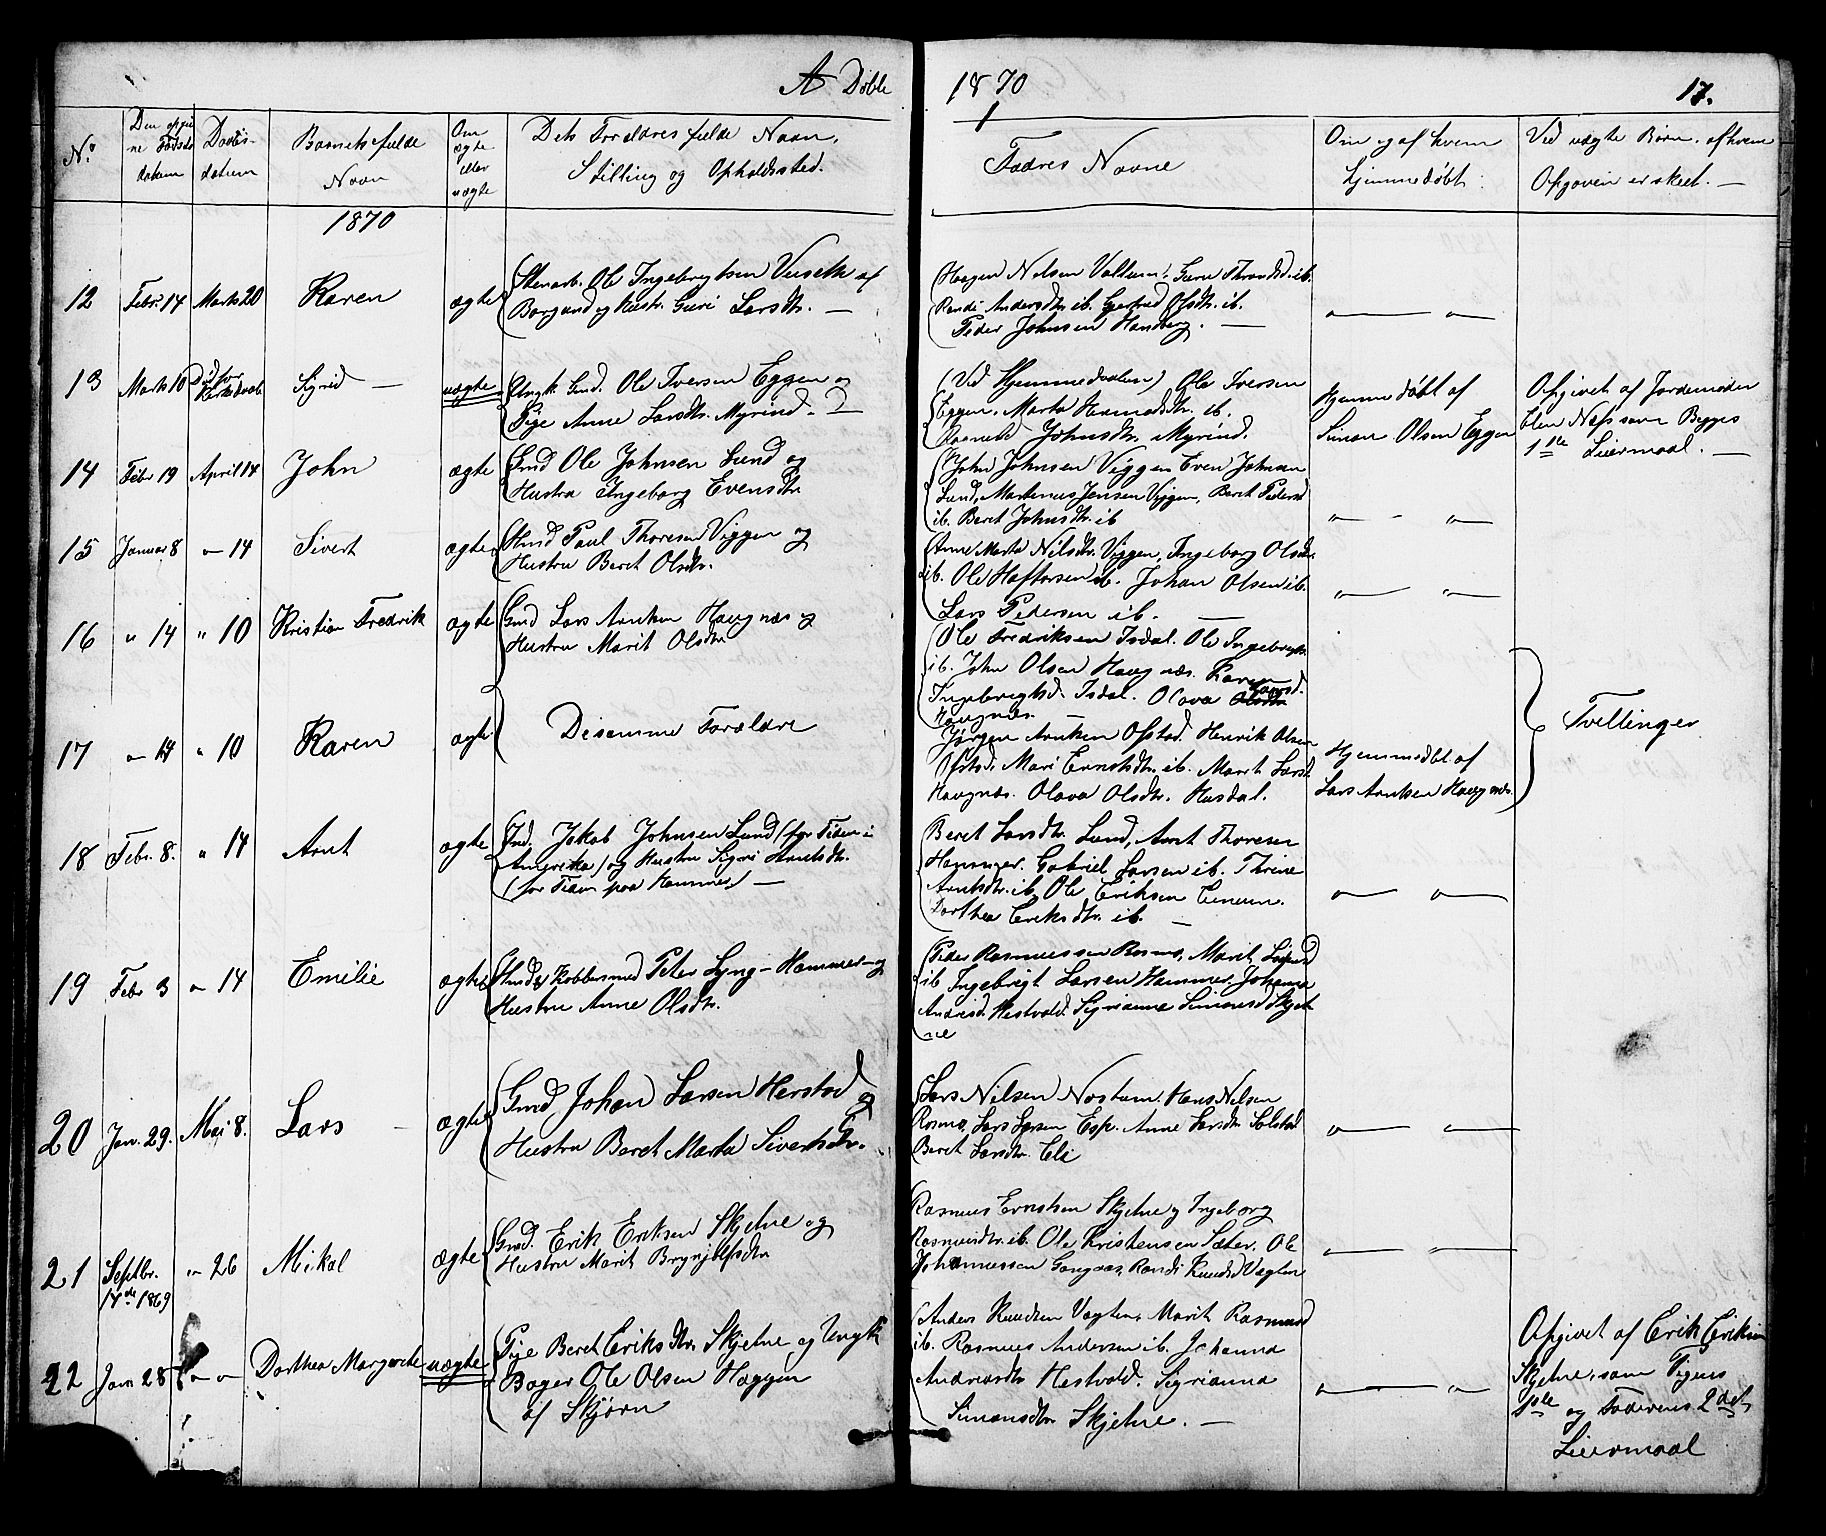 A Døbte 1870 17.
No. Den opgivne Fødselsdatum Daabsdatum Barnets fulde Navn Om ægte eller uægte Dets Forældres fulde Navn, Stilling og Opholdssted. Fadres Navne Om og af hvem hjemmedøbt. Ved uægte Børn, af hvem Opgaven er skeet. —
1870
12 Febr. 14 Marts 20 Karen ægte Ole Ingebrigtsen af
og Hustr. Guri Larsdtr. —
Haagen Nilsen ib.
Randi Andersdtr. ib. Olsdtr. ib.
Peder Johnsen —
13 Marts 10 Sigrid — uægte Ungk. Gmd. Ole Iversen Eggen og
Pige Anne Larsdtr. Myrind.
(Ved Hjemmedaaben) Ole Iversen
Eggen, Marta ib.
Johnsdtr. Myrind.
Hjemmedøbt af
Simon Olsen Eggen
Opgivet af Jordemoder
Elen som Begges
1ste Leiermaal. —
14 Febr 19 April 14 John ægte Gmd Ole Johnsen Lund og
Hustru Ingeborg Evensdtr.
John Johnsen Viggen Even Johnsen
Lund, Martinus Jensen Viggen, Beret Pedersd
ib. Beret Johnsdtr. ib
15 Januar 8 " 14 Sivert ægte Hmd Paul Thoresen Viggen og
Hustru Beret Olsdtr.
Anne Marta Nilsdtr. Viggen, Ingeborg Olsdtr.
ib. Ole Haftorsen ib. Johan Olsen ib.
Lars Pedersen ib. —
16 " 14 " 10 Kristian Fredrik ægte Gmd Lars Arntsen Haugnæs og
Hustru Marit Olsdtr
Ole Fredriksen Isdal. Ole Ingebrigts.
ib. John Olsen Haugnæs. Karen
Ingebrigtsd. Isdal. Olava Larsd.
Haugnæs. —
17 " 14 " 10 Karen ægte De samme Forældre
Jørgen Arntsen Ofstad. Henrik Olsen
Ofstad. Mari Ernstsdtr. ib. Marit Larsd.
Haugnæs. Olava Olsdtr. Husdal.
Hjemmedøbt af
Lars Arntsen Haugnæs.
Tvillinger
18 Febr. 8. " 14 Arnt ægte Ind. Jakob Johnsen Lund (for Tiden i
Amerika) og Hustru Sigri Arntsdtr.
(for Tiden paa Hammer) —
Beret Larsdtr. Lund, Arnt Thoresen
Hammer. Gabriel Larsen ib. Thrine
Arntsdtr. ib. Ole Eriksen
Dorthea Eriksdtr. ib. —
19 Febr 3 " 14 Emilie ægte Kobbersmed Peter Lyng - Hammer - og
Hustru Anne Olsdtr.
Peder Rasmussen Rosmo, Marit
ib Ingebrigt Larsen Hammer. Johanna
Andrisd. Hestvold. Sigrianna Simonsd Skjet
ne
20 Jan. 29. Mai 8. Lars ægte Gmd Johan Larsen Herstad og
Hustru Beret Marta Sivertsdtr.
Lars Nilsen Hans Nilsen
Rosmo, Lars Larsen Esp. Anne Larsdtr. Solstad
Beret Larsdtr. Eli
21 Septbr. 14de 1869 " 26 Mikal ægte Gmd. Erik Eriksen Skjetne og
Hustru Marit Brynjulfsdtr
Rasmus Ernstsen Skjetne og Ingeborg
Rasmusdtr. ib. Ole Kristensen Sæter. Ole
Johannessen Randi Knudsd Vagten
22 Jan 28 " " Dorthea Margrethe uægte Pige Beret Eriksdtr. Skjetne og Ungk
Bager Ole Olsen Haggen
af Skjørn
Anders Knudsen Vagten, Marit Rasmusd
ib. Rasmus Andersen ib. Johanna
Andrisdtr Hestvold. Sigrianna
Simonsdtr. Skjetne. —
Opgivet af Erik Eriksen
Skjetne, som Pigens
1ste og Faderens 2det
Leiermaal